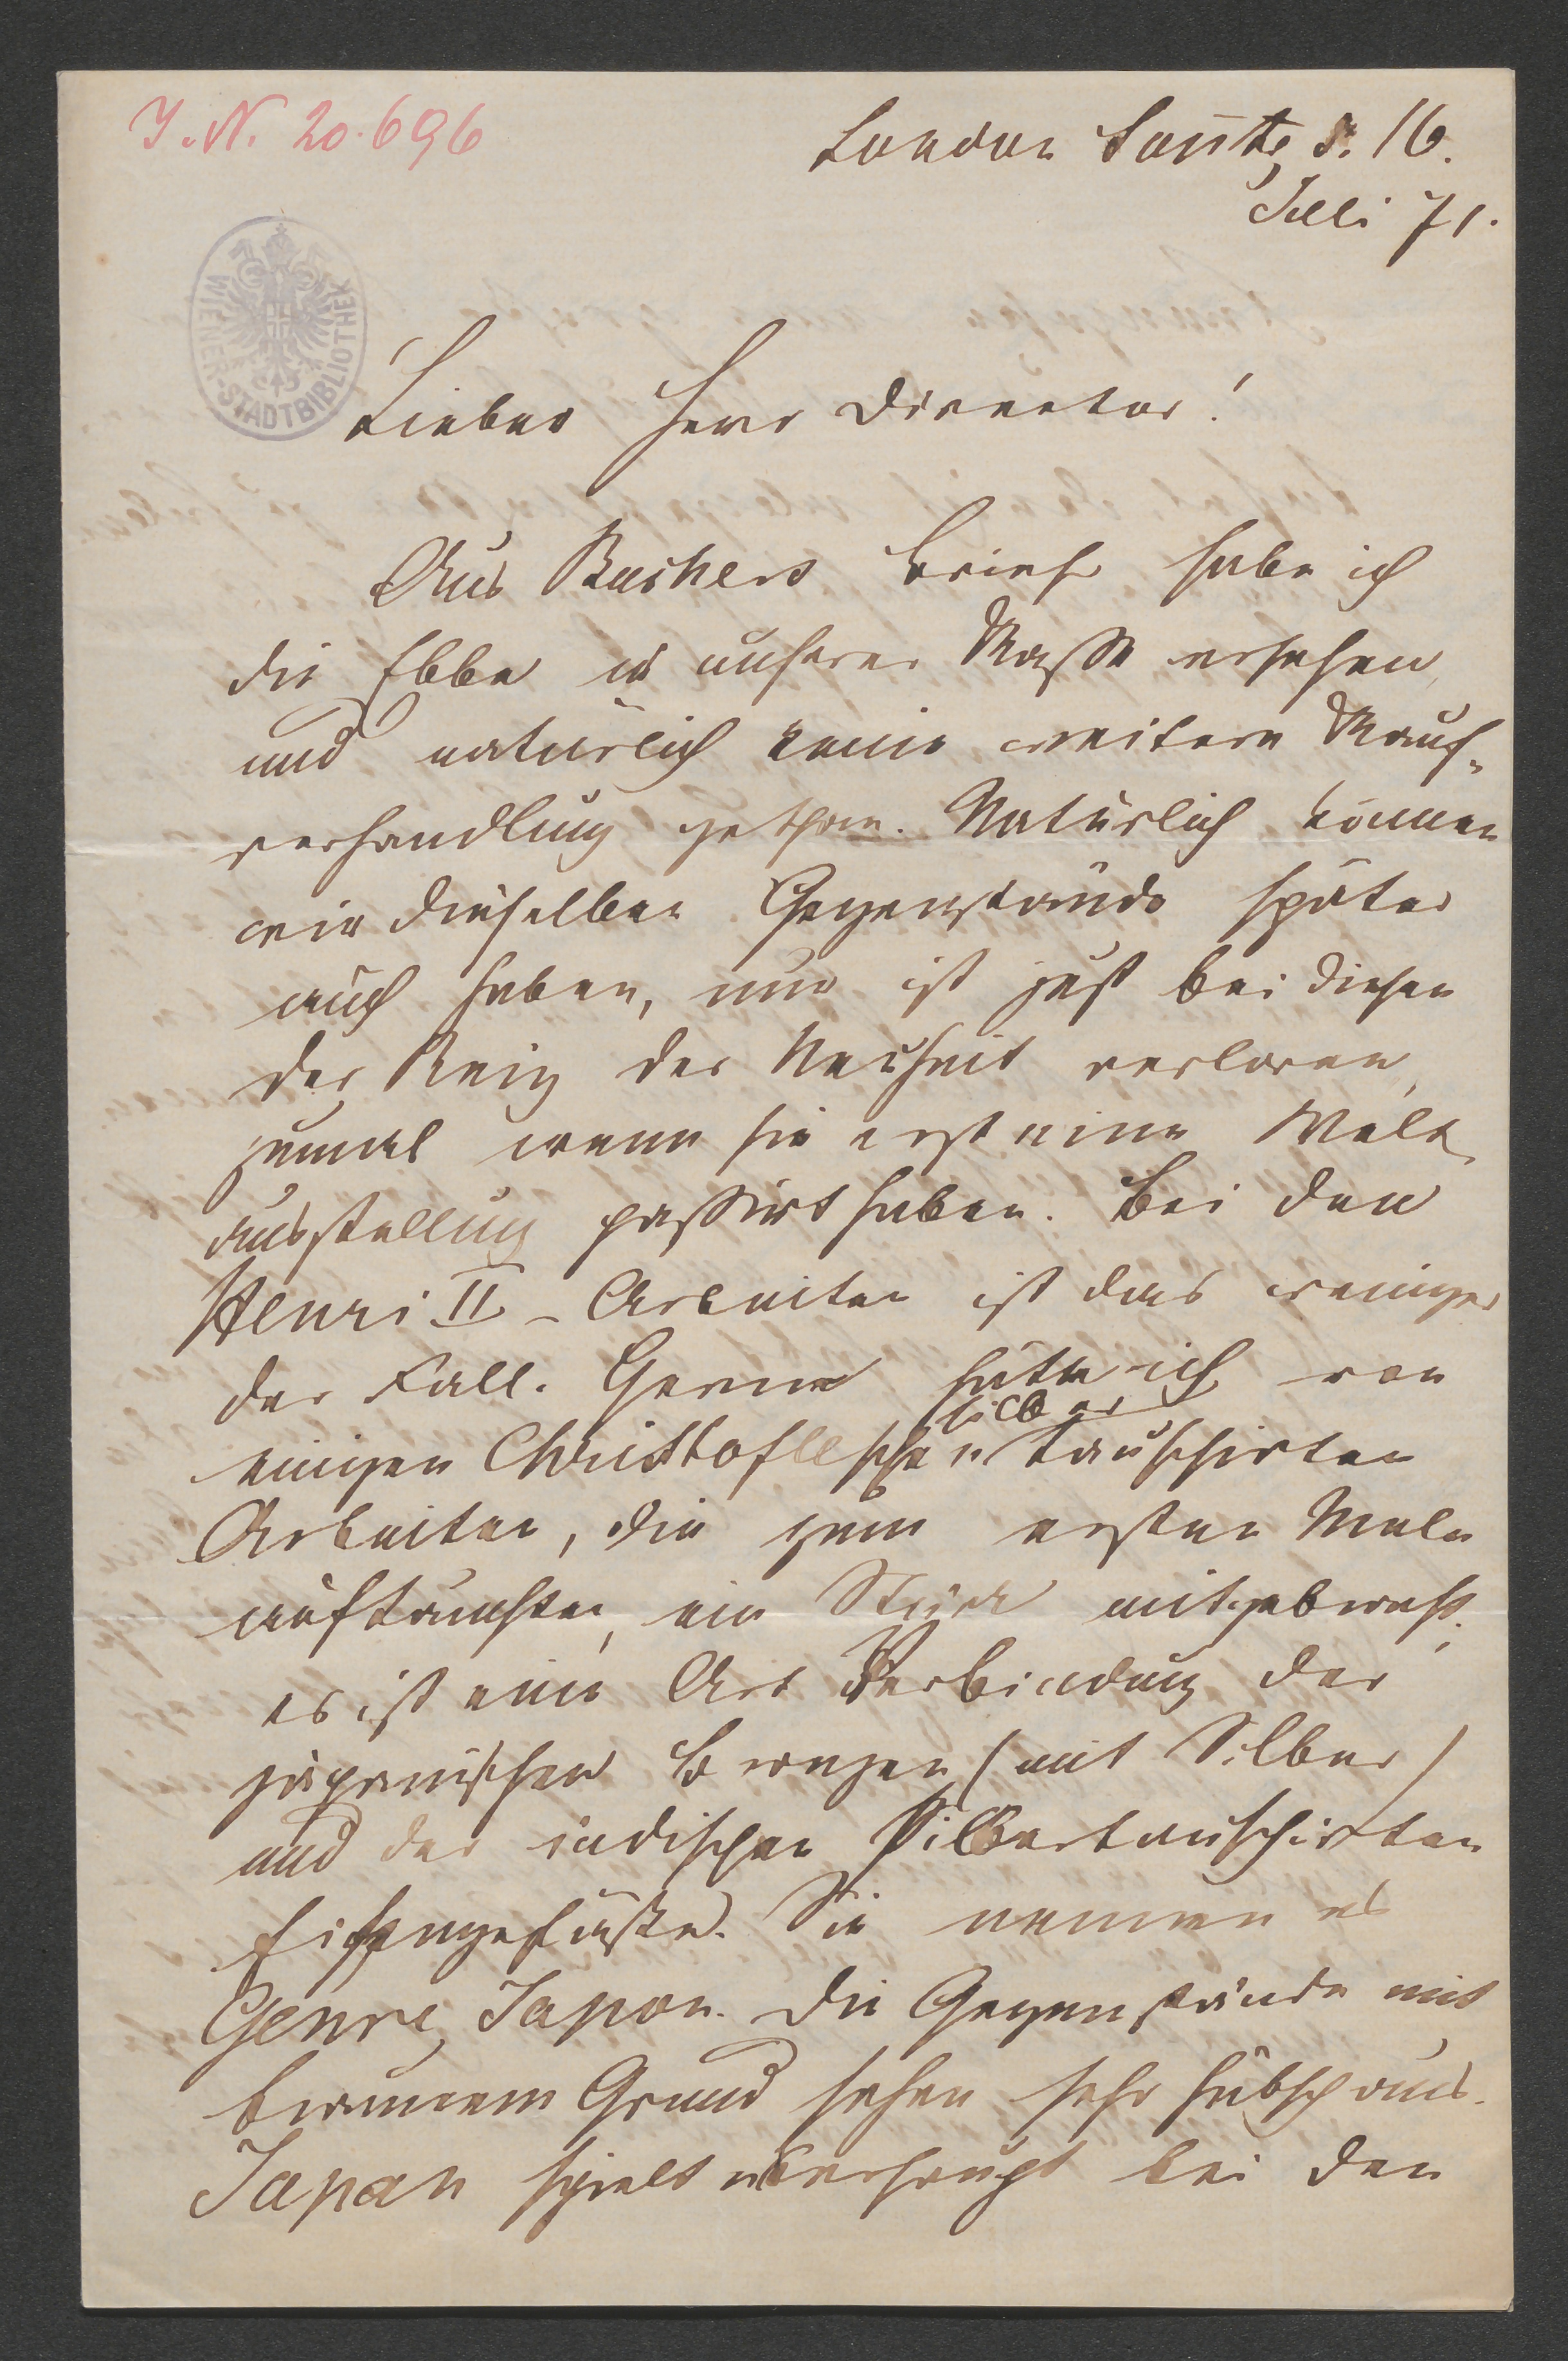 J. N. 20.696
London Sonntg d. 16.
Juli 71.
WIENER-STADTBIBLIOTHEK
Lieber Herr Director!
Aus Buchers Briefe habe ich
die Ebbe in unserer Kasse ersehen,
und natürlich keine weitere Kauf-
verhandlung gethan. Natürlich können
wir dieselben Gegenstände später
auch haben, nur ist just bei diesen
der Reiz der Neuheit verloren,
zumal wenn sie erst eine Welt-
ausstellung passirt haben. Bei den
Henri II - Arbeiten ist das weniger
der Fall. Gerne hätte ich von
silber
einigen Christofleschen tauschirten
Arbeiten, die zum ersten Male
auftauchten, ein Stück mitgebracht;
es ist eine Art Verbindung der
japanischen Bronzen (mit Silber)
und der indischen Silbertauschirten
Eisengefäße. Sie nennen es
Genre Japon. Die Gegenstände mit
braunem Grund sehen sehr hübsch aus.
Japan spielt überhaupt bei den